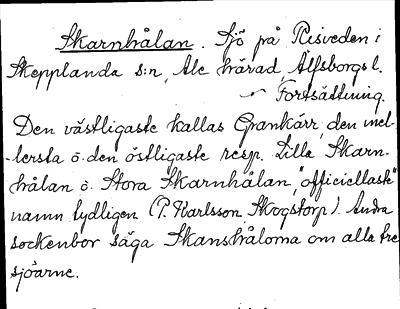 Skarnhålan. Sjö på Risveden i
Skepplanda s:n, Ale härad, Älfsborgs l.
Fortsättning.
Den västligaste kallas Grankärr, den mel-
-lersta o. den östligaste resp. Lilla Skarn-
hålan o. Stora Skarnhålan, "officiellaste"
namn tydligen (P. Karlsson, Skogstorp). Andra
sockenbor säga Skanshålorna om alla tre
sjöarne.